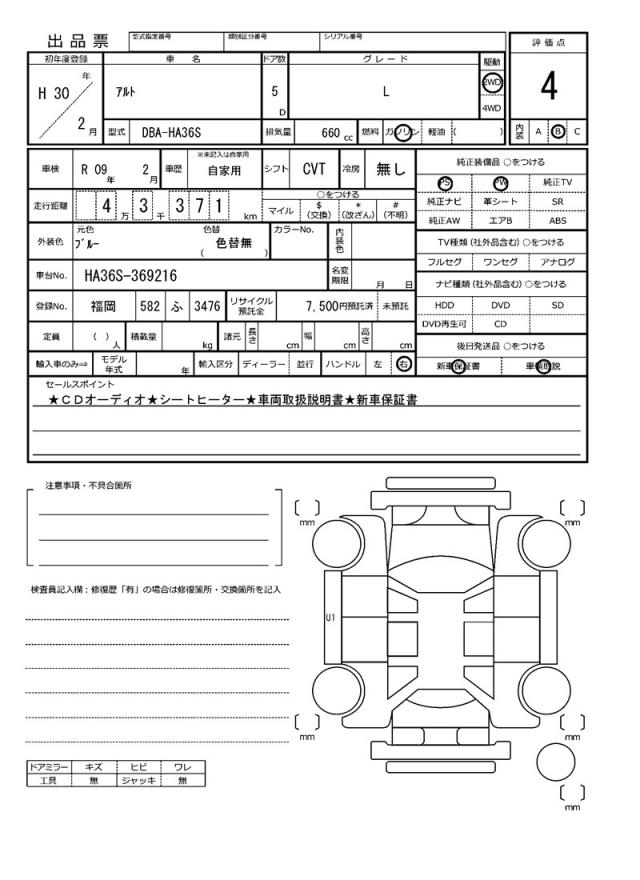 出品票 型式指定番号 類別区分番号 シリアル番号
初年度登録 車名 ドア数 グレード 駆動 評価点
H 30 年 2 月 アルト 5 D L 2WD 4WD 4
型式 DBA-HA36S 排気量 660 cc 燃料 ガソリン 軽油 ( ) 内装 A B C
車検 R 09 年 2 月 車歴 ※未記入は自家用 自家用 シフト CVT 冷房 無し
純正装備品 ○をつける
PS PW 純正TV
純正ナビ 革シート SR
純正AW エアB ABS
走行距離 4 万 3 千 3 7 1 km ○をつける
マイル $ (交換) * (改ざん) # (不明)
外装色 元色 ブルー 色替 色替無 ( ) カラーNo. 内装色
TV種類 (社外品含む) ○をつける
フルセグ ワンセグ アナログ
車台No. HA36S-369216 名変期限 月 日
ナビ種類 (社外品含む) ○をつける
HDD DVD SD
DVD再生可 CD
登録No. 福岡 582 ふ 3476 リサイクル預託金 7,500円預託済 未預託
定員 ( ) 人 積載量 kg 諸元 長さ cm 幅 cm 高さ cm
後日発送品 ○をつける
新車保証書 車輌取説
輸入車のみ⇒ モデル年式 年 輸入区分 ディーラー 並行 ハンドル 左 右
セールスポイント
★CDオーディオ★シートヒーター★車両取扱説明書★新車保証書
注意事項・不具合箇所
検査員記入欄：修復歴「有」の場合は修復箇所・交換箇所を記入
mm
mm
U1
mm
mm
mm
ドアミラー キズ ヒビ ワレ
工具 無 ジャッキ 無